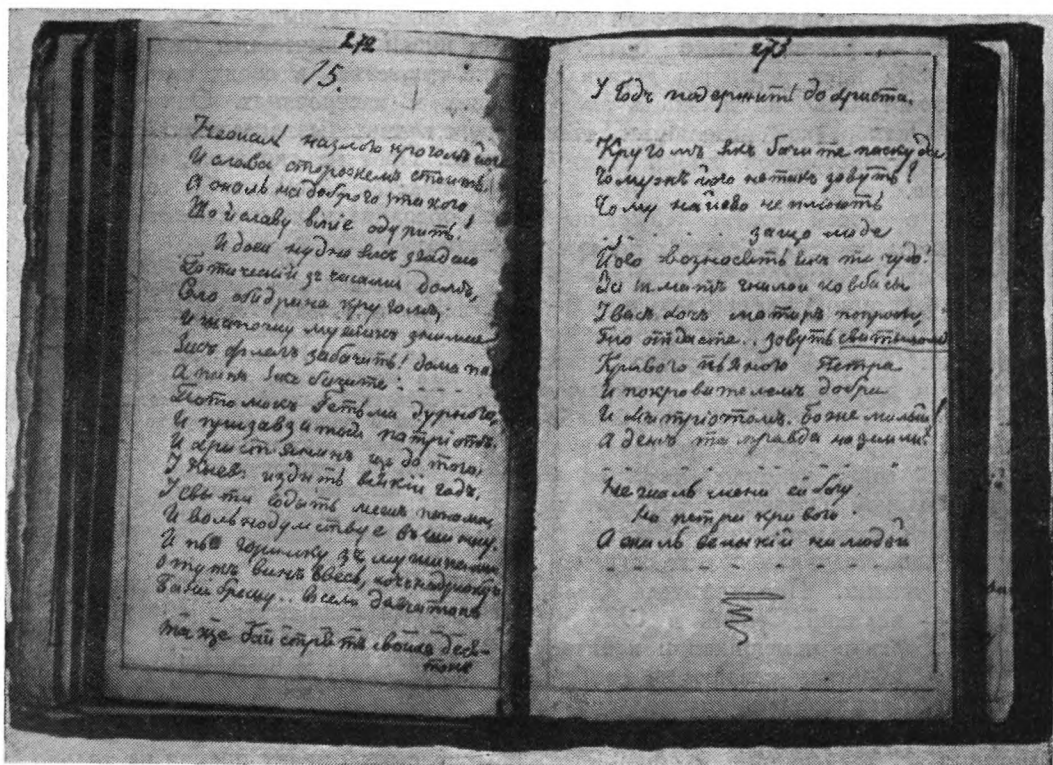 272
15.
Нежаль на злого кругомъ його
И слава сторожемъ стоить!
А жаль на доброго такого
Що й славу вміе одурить!
И доси нудно якъ згадаю
Готическій зъ часами домъ,
Село обидране кругомъ,
И шапочку мужикъ знимае
Якъ флагъ забачить! дома пан
А панъ якъ бачите . . . . .
Потомокъ Гетьмана дурного,
И презавзятый патріотъ,
И христіянинъ ще до того,
У Киевъ издить всякій годъ,
У свыти ходить межъ панами,
И вольнодумствуе въ шинку,
И пье горилку зъ мужиками
Отутъ винъ ввесь, хочь надрюкуй
та ще байстрятъ своихъ деся-
токъ
273
У Годъ подержить до Христа.
Кругомъ якъ бачите паскуда
Чомужъ його нетакъ зовуть?
Чому на його не плюють
. . . . . . защо люде
Його возносять якъ те чудо!
За шматъ гнилои ковбасы
У васъ хочь матиръ попросы,
Тыо отдасте.. зовуть
Кривого пьяного Петра
И покровителемъ добра
И Патріотомъ. боже милый!
А де жъ та правда на земли?
. . . . . . . . . .
Не жаль мени ей богу
На петра кривого
А жаль великій на людей
. . . . . . . . . .